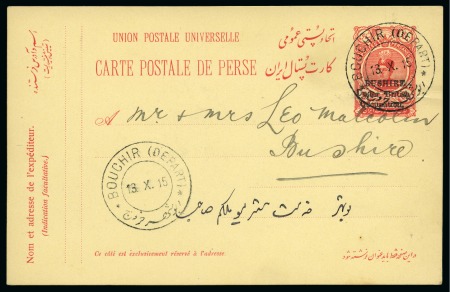 UNION POSTALE UNIVERSELLE
اتحاد پستی عمومی
CARTE POSTALE DE PERSE
کارت پستال ایران
BUSHIRE
Under British
Occupation.
BOUCHIR (DÉPART)
13. X. 15
A Mr & Mrs Leo Malcolm
Bushire
BOUCHIR (DÉPART)
13. X. 15
بوشهر
Nom et adresse de l'expéditeur.
(Indication facultative.)
Ce côté est exclusivement réservé à l'adresse.